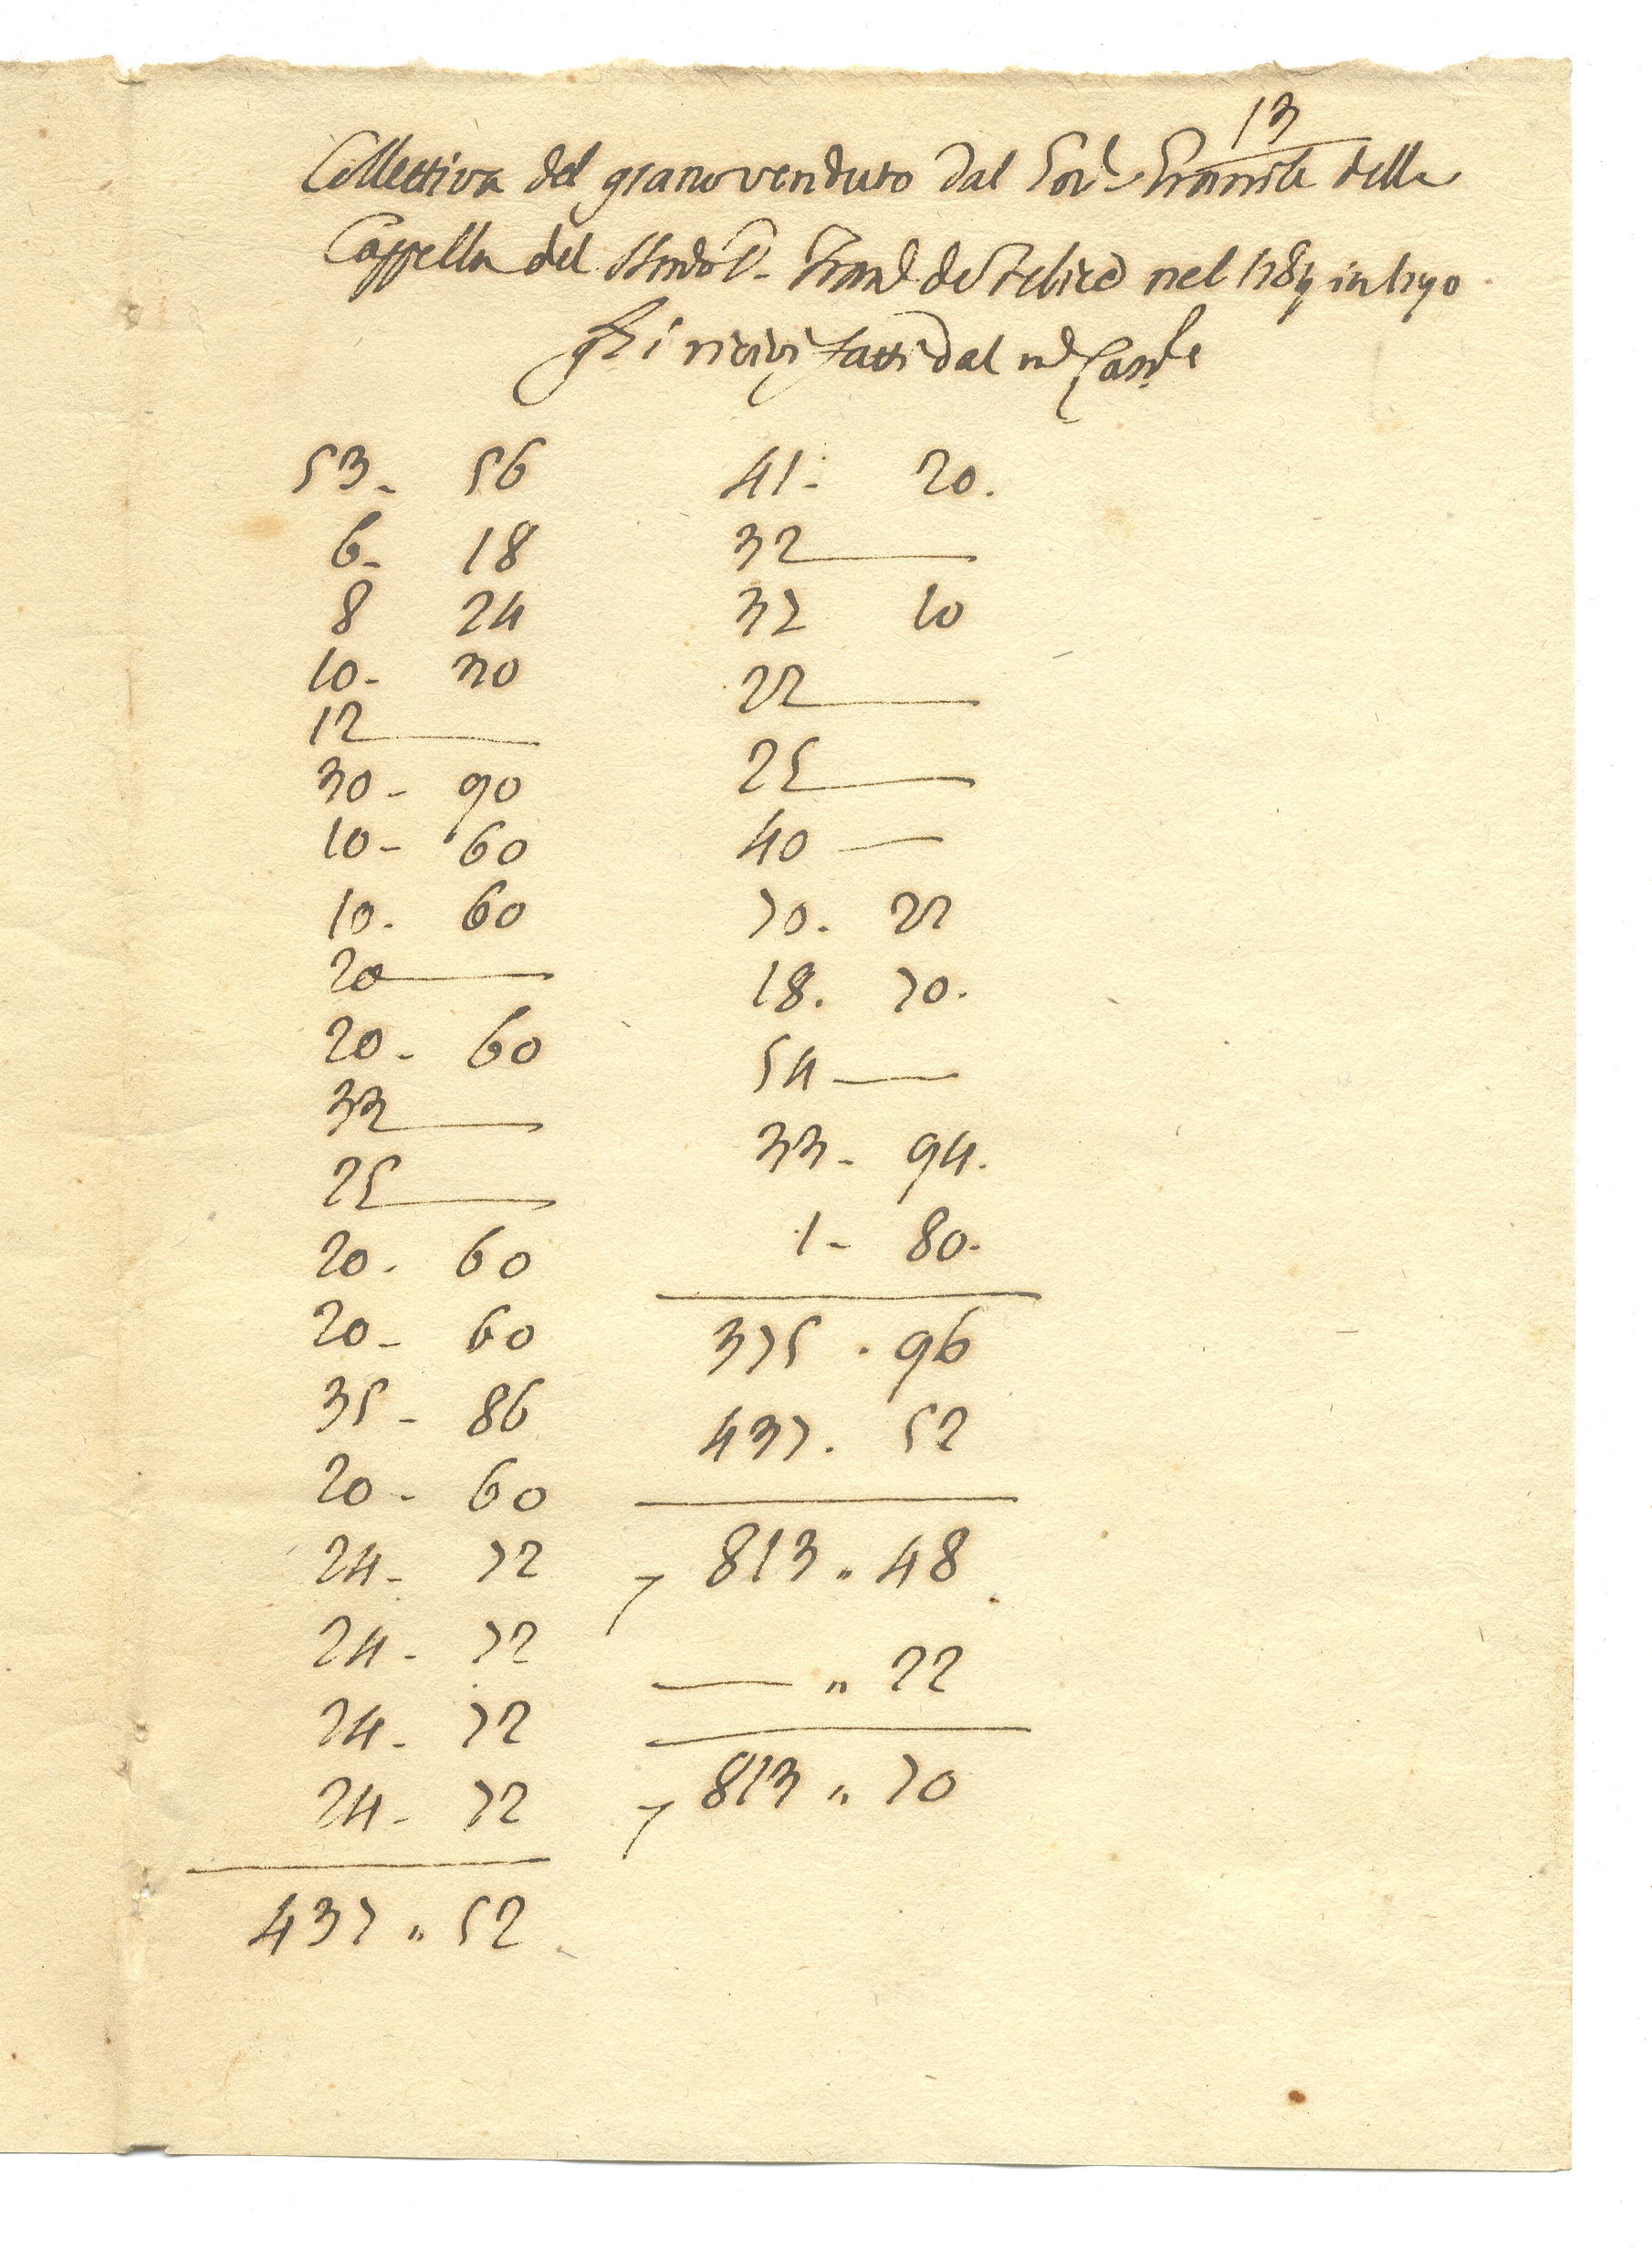 13
Collettiva del grano venduto dal della
Cappella del de Felice nel 1789 in 1790
i ricivi fatti dal
53- 56 41- 20.
6- 18 32 —
8 24 37 10
10- 30 22 —
12 — 25 —
30- 90 40 —
10- 60 70. 22
10. 60 18. 70.
20 — 54 —
20- 60 33- 94.
33 — 1- 80.
25 — 375 . 96
20. 60 437. 52
20- 60 813 " 48
35- 86 — " 22
20- 60 813 " 70
24- 72
24- 72
24- 72
24- 72
437 " 52